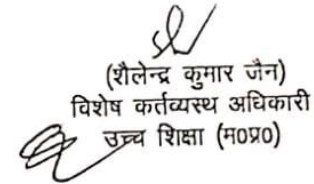 (शैलेन्द्र कुमार जैन)
विशेष कर्तव्यस्थ अधिकारी
उच्च शिक्षा (म0प्र0)